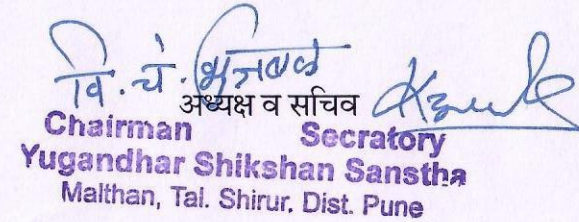 वि. चं. भुजबळ
अध्यक्ष व सचिव
Chairman Secratory
Yugandhar Shikshan Sanstha
Malthan, Tal. Shirur. Dist. Pune